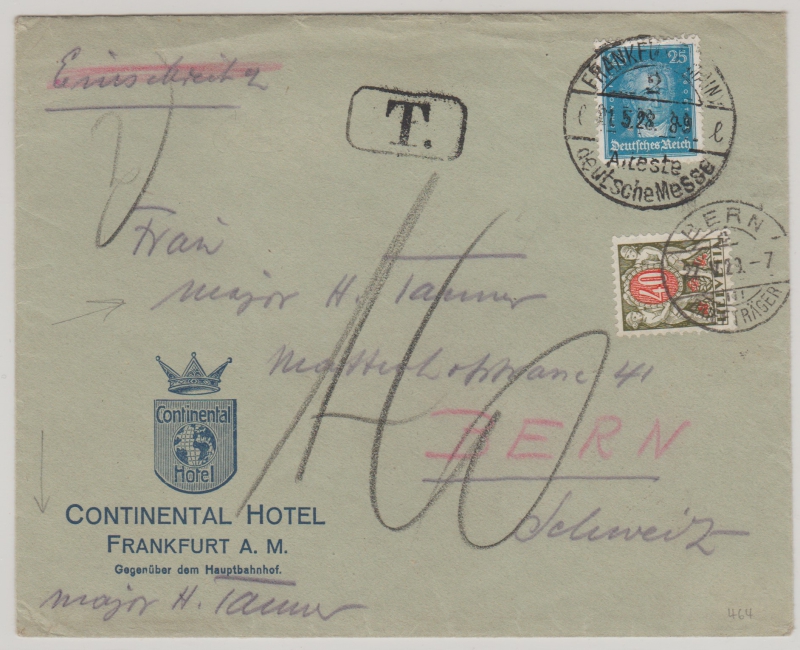 Einschreiben
T.
FRANKFURT (MAIN)
2
21.5.28. 8-9
l l
Älteste
deutsche Messe
25
Deutsches Reich
BERN
-7
BRIEFTRÄGER
40
HELVETIA
Frau
Major H. Tanner
41
BERN
Schweiz
40
Continental
Hotel
CONTINENTAL HOTEL
FRANKFURT A. M.
Gegenüber dem Hauptbahnhof.
Major H. Tanner
464